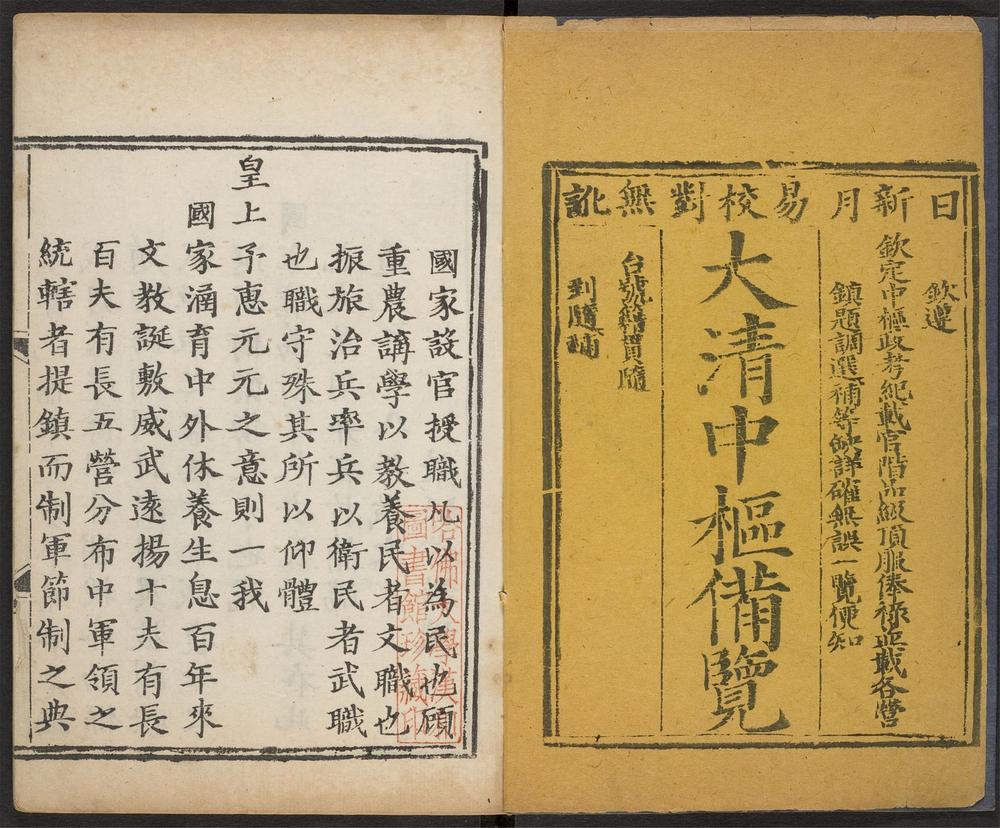 日新月易校對無訛
欽遵
欽定中樞政考紀載官階品級頂服俸祿並載各營
鎮題調選補等缺詳確無誤一覽便知
大清中樞備覽
台號籍貫隨
到隨補
國家設官授職凡以為民也顧
重農講學以教養民者文職也
振旅治兵率兵以衛民者武職
也職守殊其所以仰體
皇上子惠元元之意則一我
國家涵育中外休養生息百年來
文教誕敷威武遠揚十夫有長
百夫有長五營分布中軍領之
統轄者提鎮而制軍節制之典
哈佛大學漢和
圖書館珍藏印